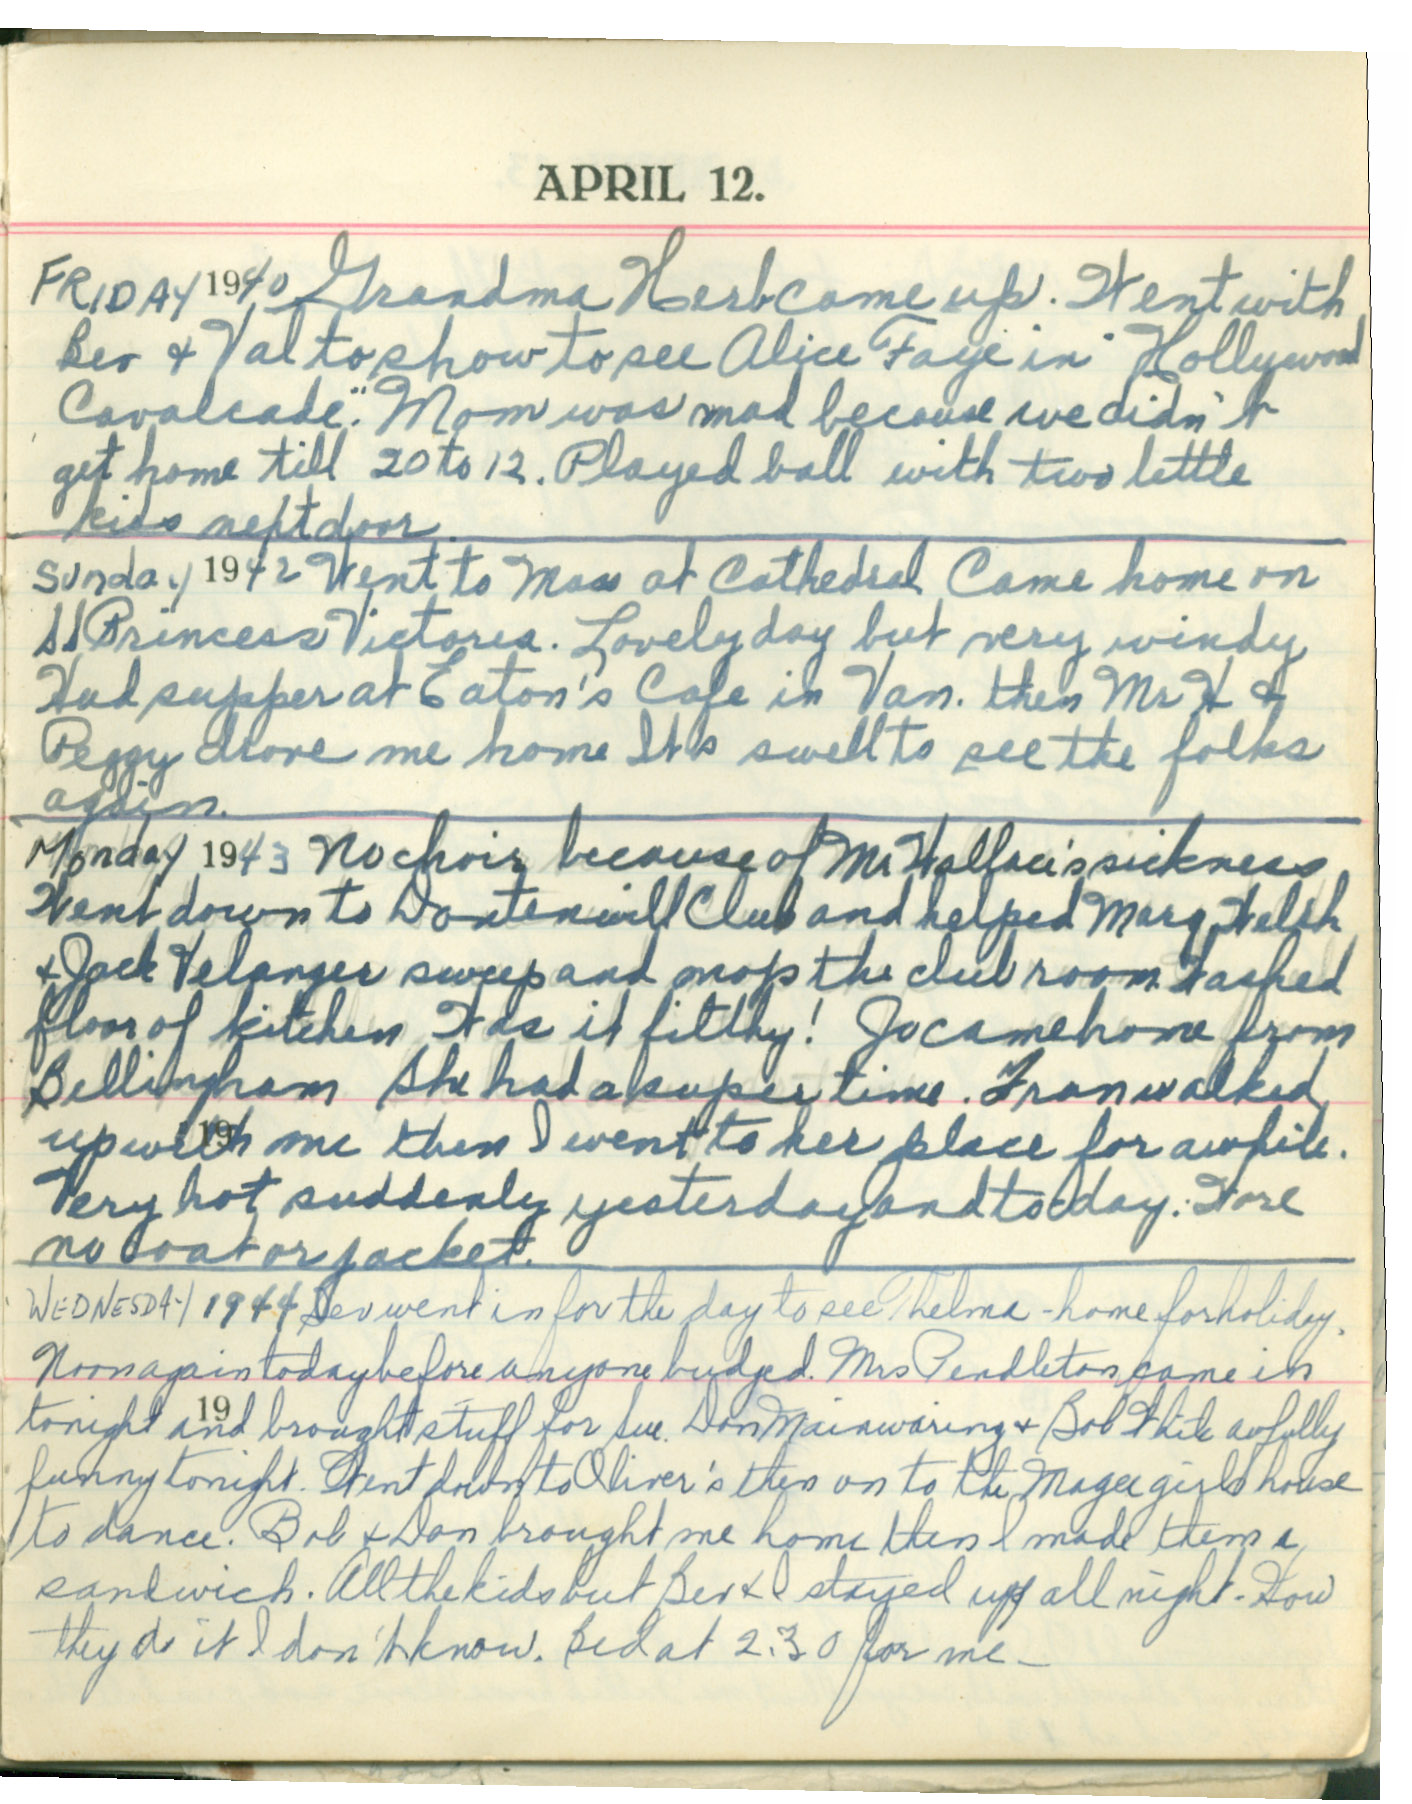 APRIL 12.
FRIDAY 1940 Grandma Herb came up. Went with
Bev & Val to show to see Alice Faye in "Hollywood
Cavalcade". Mom was mad because we didn't
get home till 20 to 12. Played ball with two little
kids next door.
Sunday 1942 Went to Mass at Cathedral Came home on
SS Princess Victoria. Lovely day but very windy
Had supper at Eaton's Cafe in Van. then Mr H &
Peggy drove me home It's swell to see the folks
again.
Monday 1943 No choir because of Mr Wallace's sickness
Went down to Dontenwill Club and helped Marg Walsh
& Jack Velanger sweep and mop the club room. Washed
floor of kitchen Was it filthy! Jo came home from
Bellingham She had a super time. Fran walked
19
up with me then I went to her place for awhile.
Very hot suddenly yesterday and today. Wore
no coat or jacket.
WEDNESDAY 1944 Bev went in for the day to see Thelma - home for holiday.
Noon again today before anyone budged. Mrs Pendleton came in
19
tonight and brought stuff for Sue. Don Mainwaring & Bob White awfully
funny tonight. Went down to Oliver's then on to the Magee girls house
to dance. Bob & Don brought me home then I made them a
sandwich. All the kids but Bev & I stayed up all night - How
they do it I don't know. Bed at 2.30 for me -